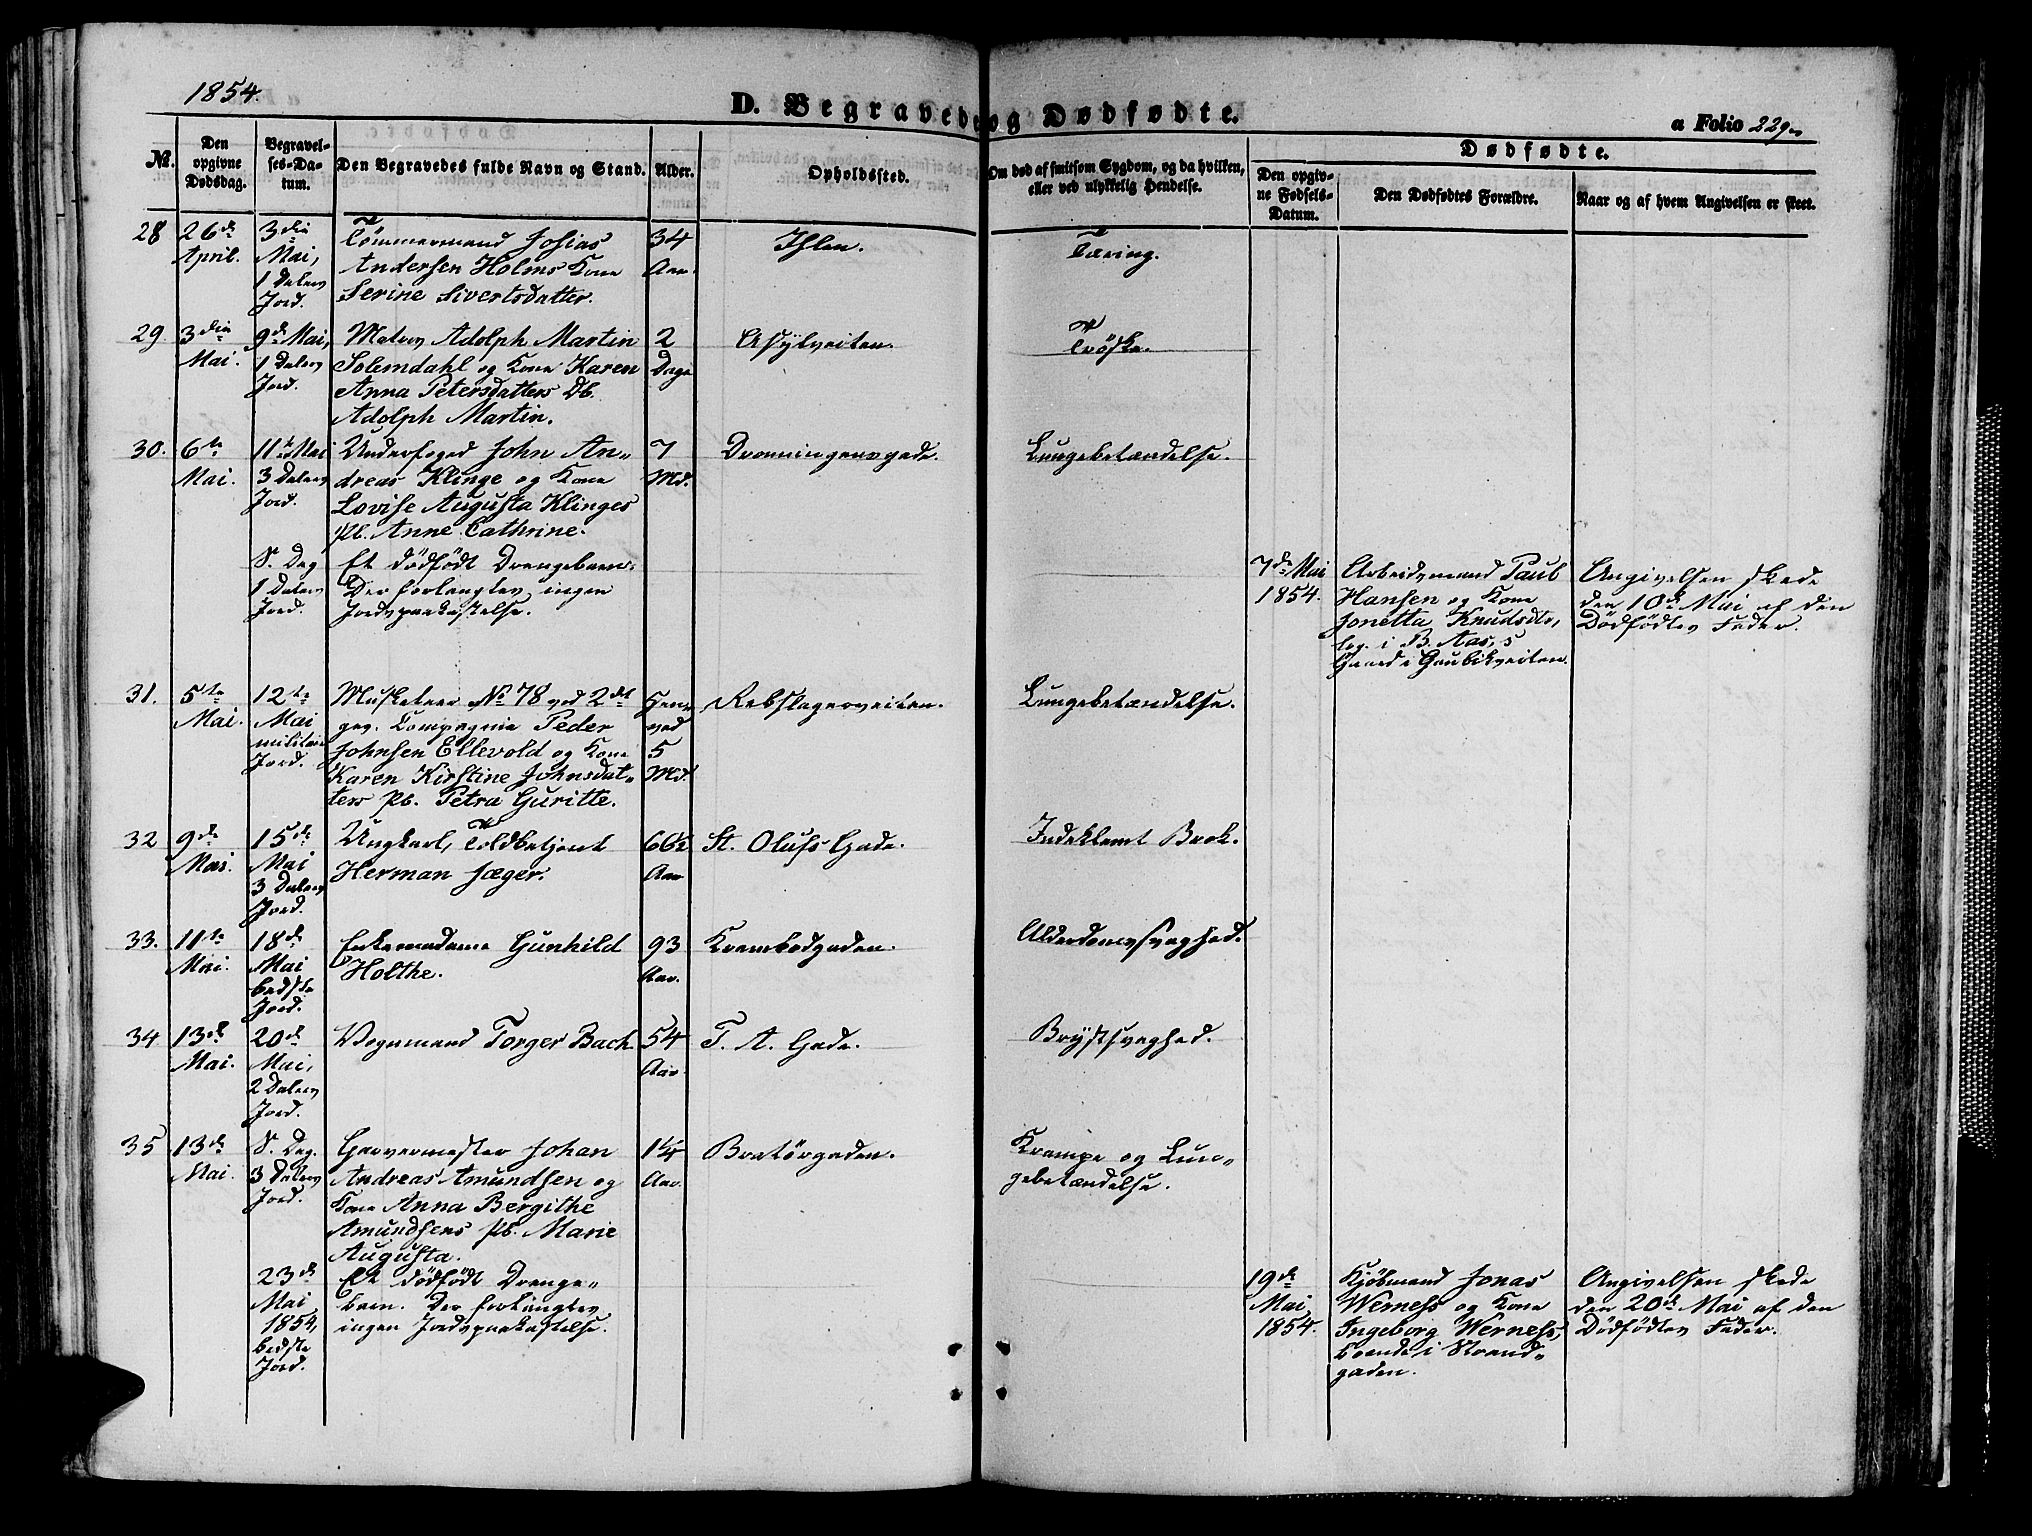 1854.
D. Begravede og Dødfødte.
a Folio 229.
No.
Den opgivne Dødsdag.
Begravelses-Datum.
Den Begravedes fulde Navn og Stand.
Alder.
Opholdssted.
Om død af smitsom Sygdom, og da hvilken, eller ved ulykkelig Hendelse.
Dødfødte.
Den opgivne Fødsels-Datum.
Den Dødfødtes Forældre.
Naar og af hvem Angivelsen er skeet.
28
26de April.
3die Mai, 1 Dalers Jord.
Tömmermand Josias
Andersen Holms Kone
Serine Sivertsdatter.
34 Aar.
Ihlen.
Tæring.
29.
3die Mai.
9de Mai, 1 Dalers Jord.
Maler Adolph Martin
Solemdahl og Kone Karen
Anna Petersdatters Db.
Adolph Martin.
2 Dage
Asylveiten.
Trøske.
30.
6te Mai.
11te Mai 3 Dalers Jord.
Underfoged John An-
dreas Klinge og Kone
Lovise Augusta Klinges
Pb. Anne Cathrine.
7 Md.
Dronningensgade.
Lungebetændelse.
S. Dag 1 Dalers Jord.
Et dödfödt Drengebarn.
Der forlangtes ingen
Jordspaakastelse.
7de Mai 1854.
Arbeidsmand Paul
Hansen og Kone
Jonetta Knudsdtr,
log. i B. Aas's
Gaard i Gaubikveiten.
Angivelsen skede
den 10de Mai af den
Dödfödtes Fader.
31.
5te Mai.
12te Mai militair Jord.
Musketeer No 78 ved 2det
gev. Compagnie Peder
Johnsen Ellevold og Kone
Karen Kirstine Johnsdat-
ters Pb. Petra Guritte.
5 Md.
Rebslagerveiten.
Lungebetændelse.
32
9de Mai.
15de Mai 3 Dalers Jord.
Ungkarl, Toldbetjent
Herman Jæger.
66½ Aar
St. Olufs Gade.
Indeklemt Brok.
33.
11te Mai.
18de Mai bedste Jord.
Enkemadame Gunhild
Holthe.
93 Aar.
Krambodgaden.
Alderdomssvaghed.
34
13de Mai.
20de Mai, 2 Dalers Jord.
Vognmand Torger Bach
54 Aar.
T. A. Gade.
Brystsvaghed.
35
13de Mai.
S. Dag. 3 Dalers Jord.
Garvermester Johan
Andreas Amundsen og
Kone Anna Bergithe
Amundsens Pb. Marie
Augusta.
1¼ Aar.
Bratörgaden.
Krampe og Lun-
gebetændelse.
23de Mai 1854, bedste Jord.
Et dödfödt Drenge-
barn. Der forlangtes
ingen Jordspaakastelse.
19de Mai, 1854.
Kjöbmand Jonas
Werness og Kone
Ingeborg Werness,
boende i Strand-
gaden.
Angivelsen skede
den 20de Mai af den
Dödfödtes Fader.